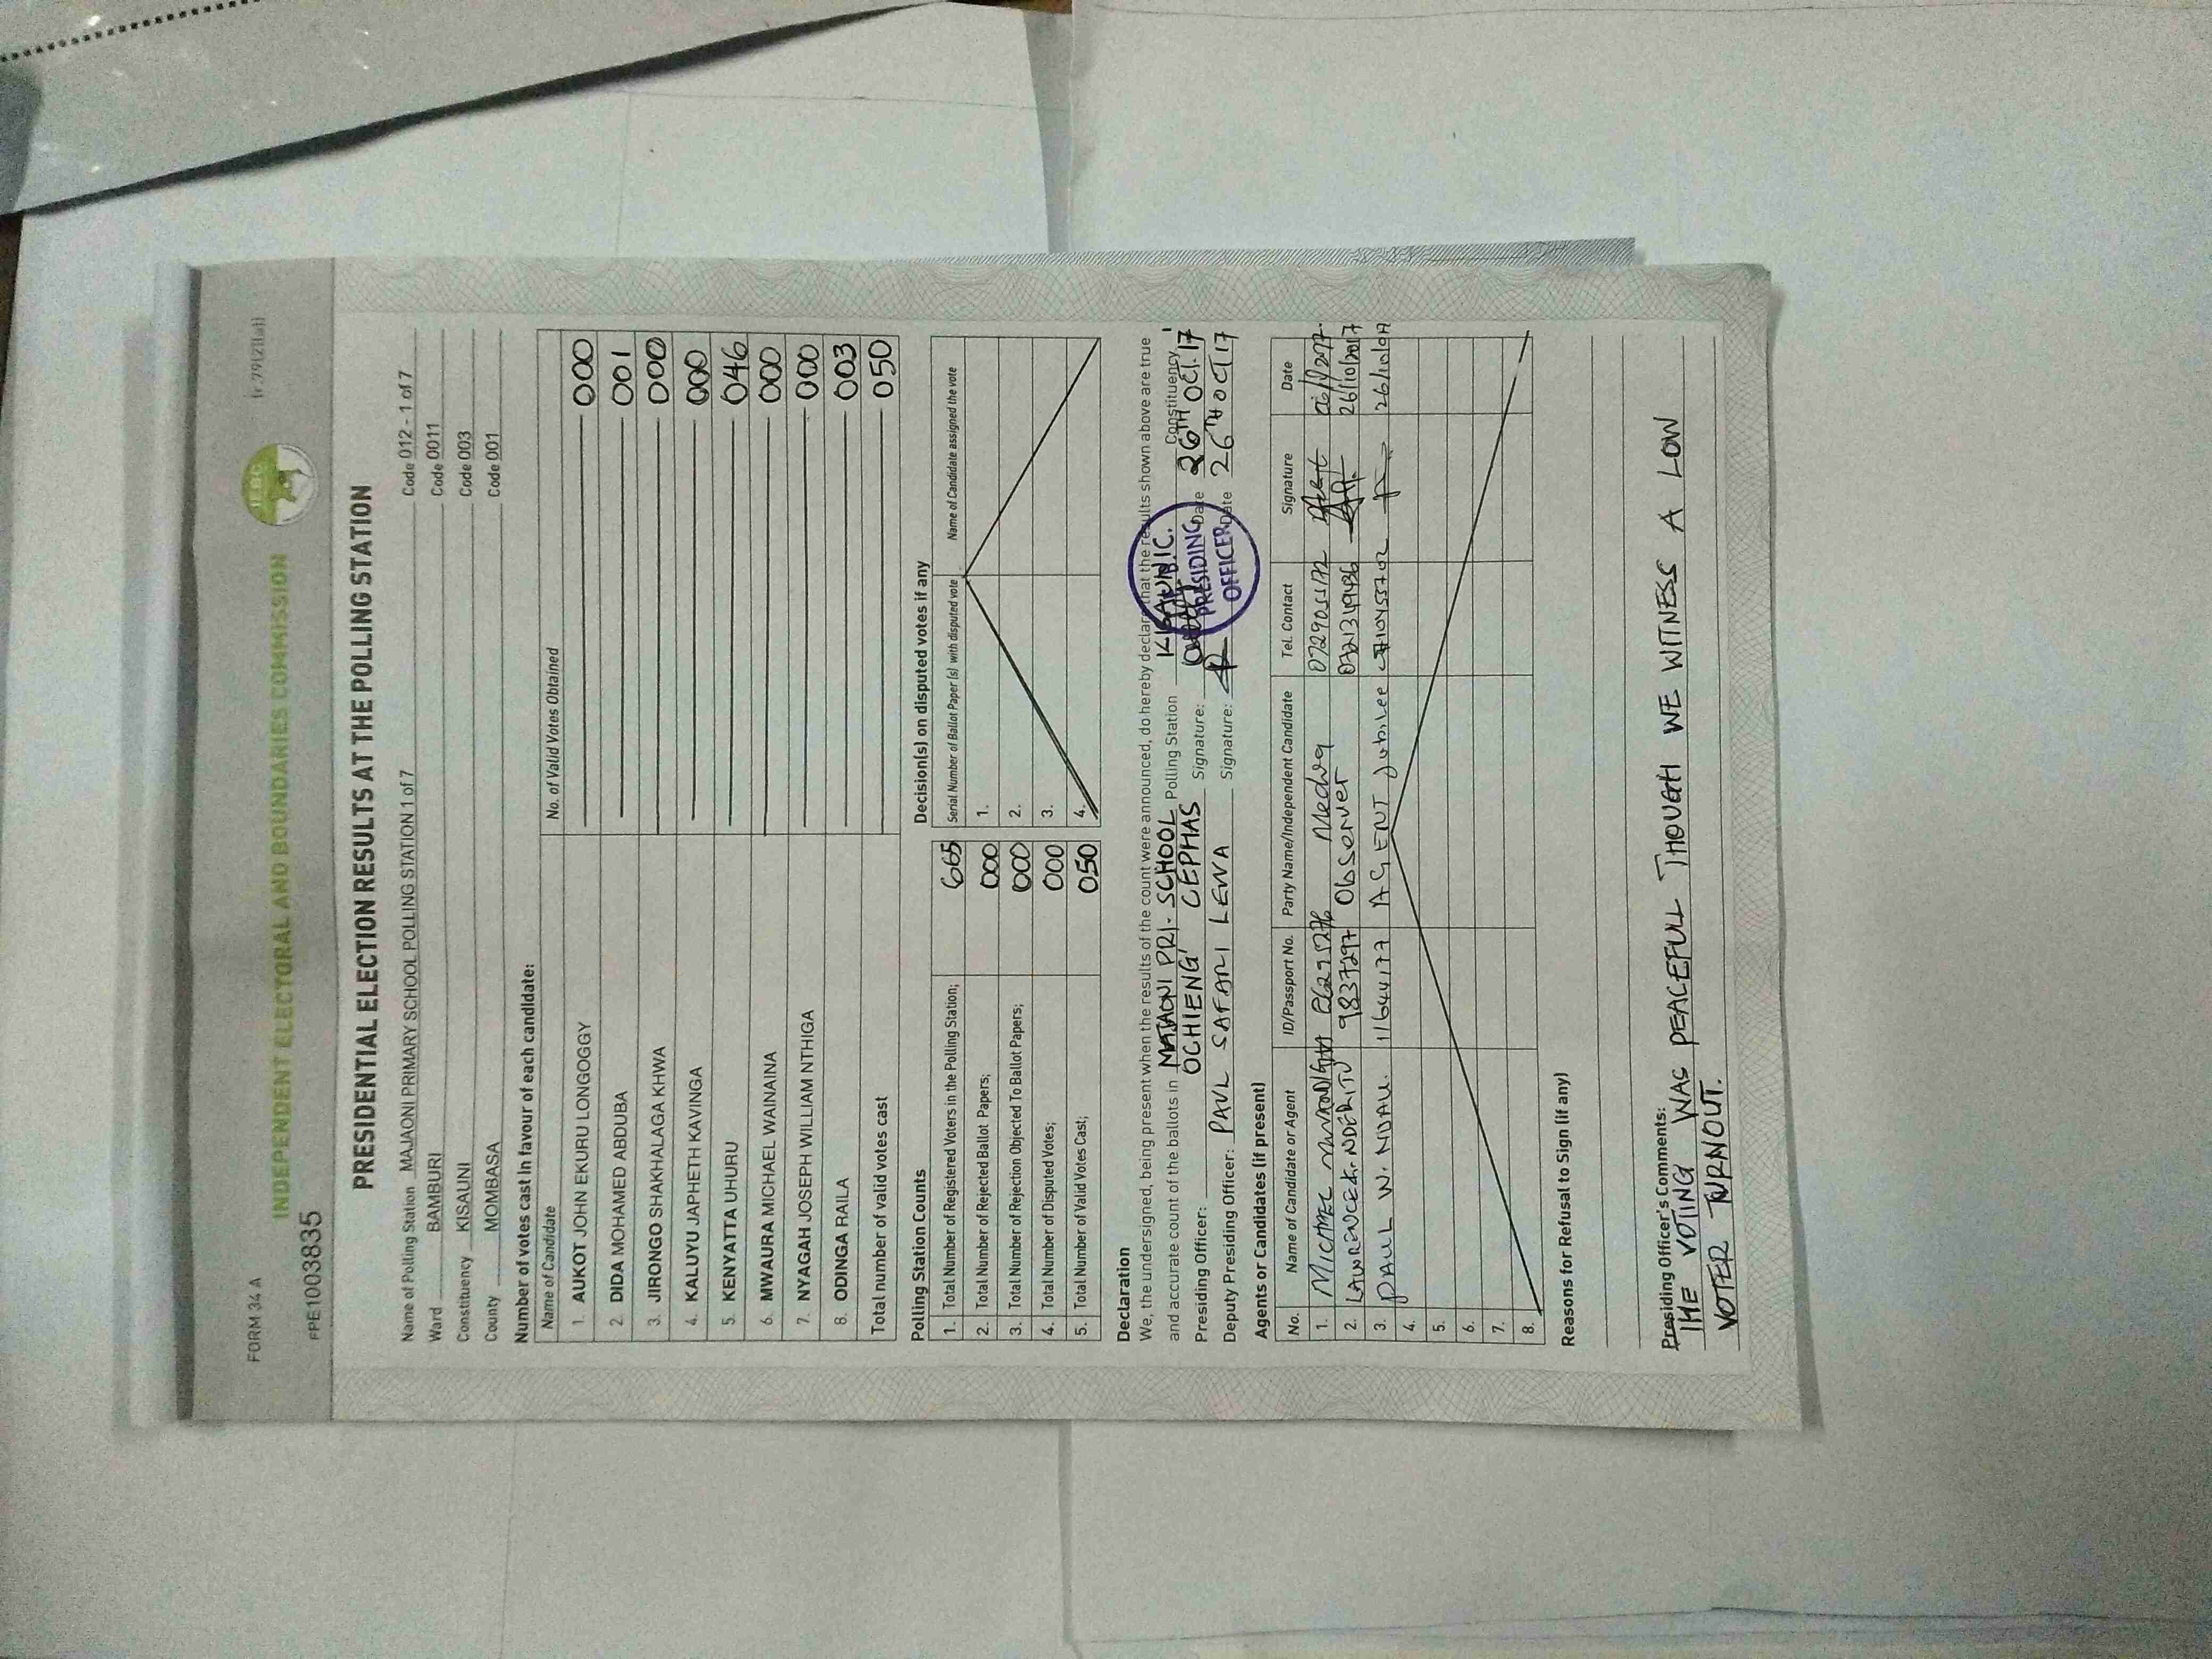 FORM 34 A
(r. 79(2)(a))
INDEPENDENT ELECTORAL AND BOUNDARIES COMMISSION
IEBC
FPE1003835
PRESIDENTIAL ELECTION RESULTS AT THE POLLING STATION
Name of Polling Station MAJAONI PRIMARY SCHOOL POLLING STATION 1 of 7 Code 012 - 1 of 7
Ward BAMBURI Code 0011
Constituency KISAUNI Code 003
County MOMBASA Code 001
Number of votes cast In favour of each candidate:
Name of Candidate No. of Valid Votes Obtained
1. AUKOT JOHN EKURU LONGOGGY 000
2. DIDA MOHAMED ABDUBA 001
3. JIRONGO SHAKHALAGA KHWA 000
4. KALUYU JAPHETH KAVINGA 000
5. KENYATTA UHURU 046
6. MWAURA MICHAEL WAINAINA 000
7. NYAGAH JOSEPH WILLIAM NTHIGA 000
8. ODINGA RAILA 003
Total number of valid votes cast 050
Polling Station Counts
1. Total Number of Registered Voters in the Polling Station; 665
2. Total Number of Rejected Ballot Papers; 000
3. Total Number of Rejection Objected To Ballot Papers; 000
4. Total Number of Disputed Votes; 000
5. Total Number of Valid Votes Cast; 050
Decision(s) on disputed votes if any
Serial Number of Ballot Paper (s) with disputed vote Name of Candidate assigned the vote
1.
2.
3.
4.
Declaration
We, the undersigned, being present when the results of the count were announced, do hereby declare that the results shown above are true
and accurate count of the ballots in MAJAONI PRI- SCHOOL Polling Station KISAUNI Constituency
Presiding Officer: OCHIENG' CEPHAS Signature: Date 26TH OCT. 17
Deputy Presiding Officer: PAUL SAFARI LEWA Signature: Date 26TH OCT 17
PRESIDING
OFFICER
Agents or Candidates (if present)
No. Name of Candidate or Agent ID/Passport No. Party Name/Independent Candidate Tel. Contact Signature Date
1. Media
2. LAWRENCE K. NDERITU 9837297 Observer 0721349436 26/10/2017
3. PAUL W. NDAU. 11644177 AGENT Jubilee
4.
5.
6.
7.
8.
Reasons for Refusal to Sign (if any)
Presiding Officer's Comments:
THE VOTING WAS PEACEFULL THOUGH WE WITNESS A LOW
VOTER TURNOUT.